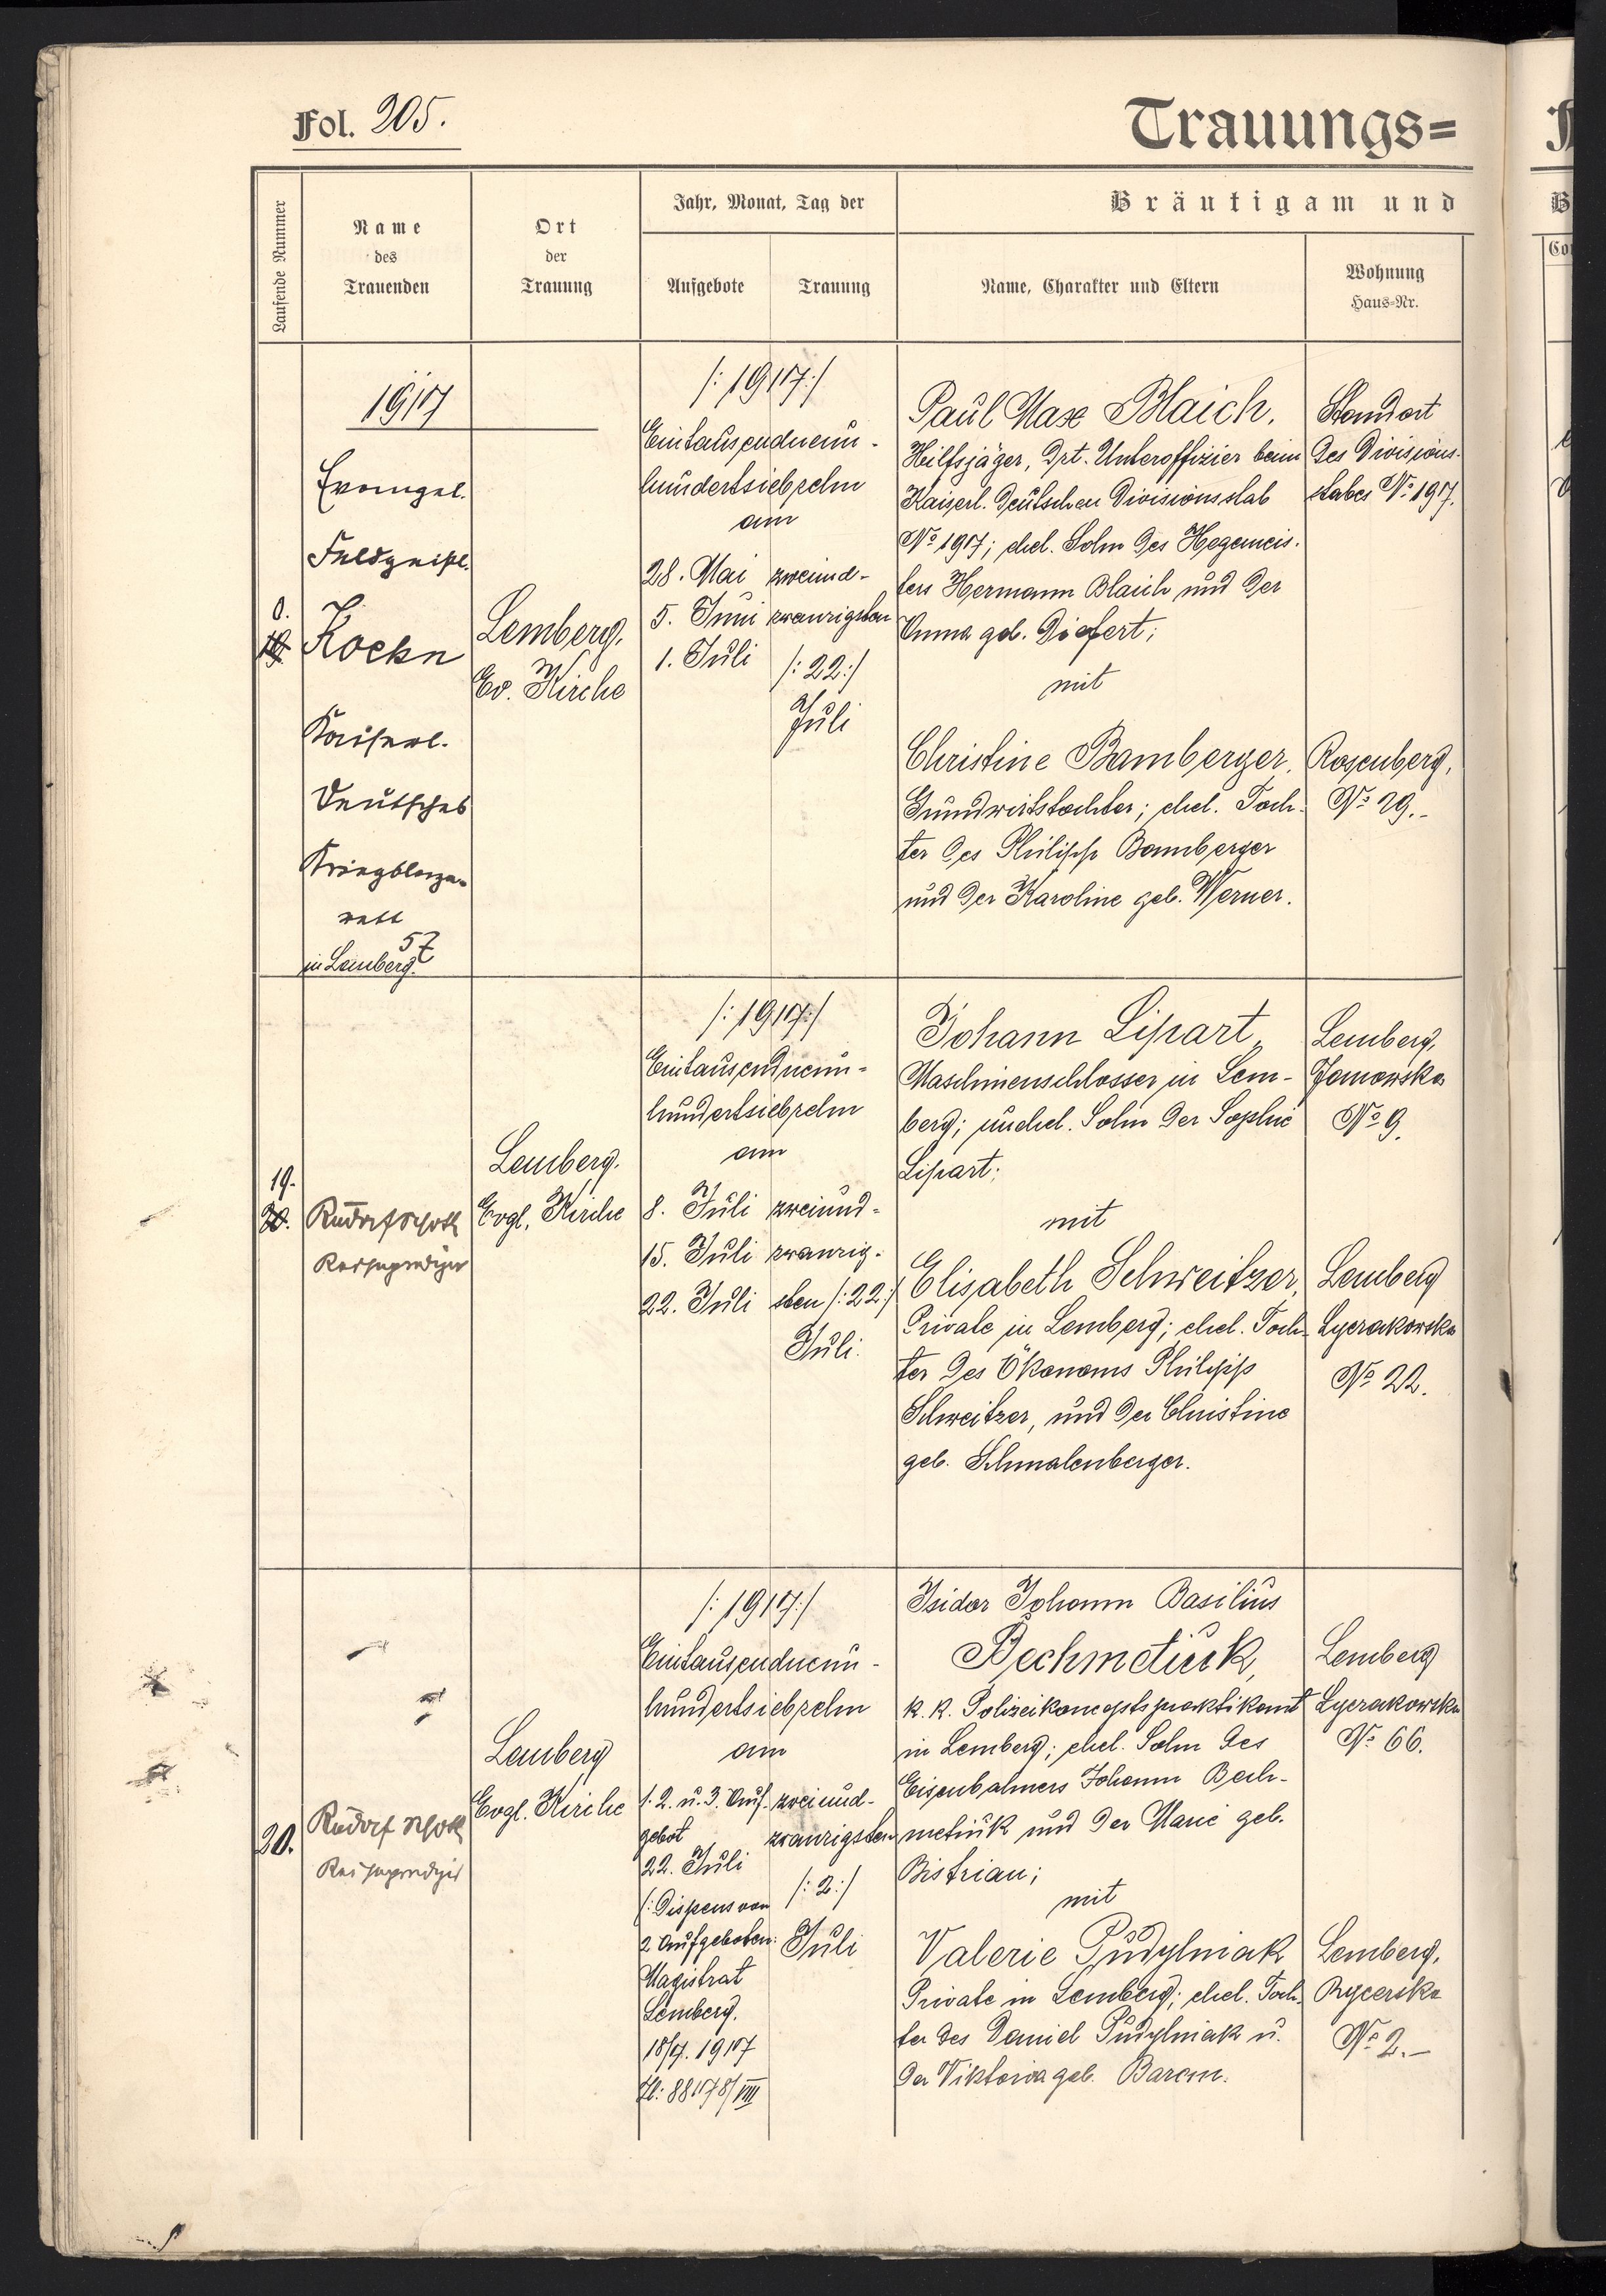 Fol. 205.
Trauungs=
Laufende Nummer
Name
des
Trauenden
Ort
der
Trauung
Jahr, Monat, Tag der
Aufgebote
Trauung
Bräutigam und
Name, Charakter und Eltern
Wohnung
Haus-Nr.
1917
0.
Evangel.
Feldgeistl.
Kaiserl.
Deutsches
Kriegslaza-
rett
57
in Lemberg.
Lemberg.
Ev. Kirche
/: 1917 :/
Eintausendneun-
hundertsiebzehn
am
28. Mai
5. Juni
1. Juli
zweiund-
zwanzigsten
/: 22 :/
Juli
Paul Max Blaich.
Hilfsjäger, Drt. Unteroffizier beim
Kaiserl. Deutschen Divisionsstab
No 1917; ehel. Sohn des Hegemeis-
ters Hermann Blaich und der
Anna geb.
mit
Christine Bamberger,
Grundwirtstochter; ehel. Toch-
ter des Philipp Bamberger
und der Karoline geb. Werner.
Standort
des Divisions-
stabes No 1917.
Rosenberg,
No 29.-
19.
20.
Rudolf
Lemberg.
Evgl. Kirche
/: 1917 :/
Eintausendneun-
hundertsiebzehn
am
8. Juli
15. Juli
22. Juli
zweiund-
zwanzig-
sten /: 22 :/
Juli.
Johann Lipart,
Maschinenschlosser in Lem-
berg; unehel. Sohn der Sophie
Lipart;
mit
Elisabeth Schweitzer,
Private in Lemberg; ehel. Toch-
ter des Ökonoms Philipp
Schweitzer, und der Christine
geb. Schmalenberger.
Lemberg,
Janowska
No 9.
Lemberg
Lyczakowska
No 22.
20.
Rudolf
Lemberg
Evgl. Kirche
/: 1917 :/
Eintausendneun-
hundertsiebzehn
am
1. 2. u. 3. Auf-
gebot
22. Juli
/: Dispens von
2 Aufgeboten:
Magistrat
Lemberg.
18/7. 1917
Zl: 88178/VIII
zweiund-
zwanzigsten
/: 2 :/
Juli
Isidor Johann Basilius
Bechmetiuk,
k. k. Polizeikonceptspraktikant
in Lemberg; ehel. Sohn des
Eisenbahners Johann Bech-
metiuk und der Marie geb.
Bistrian;
mit
Valerie Pudylniak
Private in Lemberg; ehel. Toch-
ter des Daniel Pudylniak u.
der Viktoria geb.
Lemberg
Lyczakowska
No 66.
Lemberg,
Rycerska
No 2.-